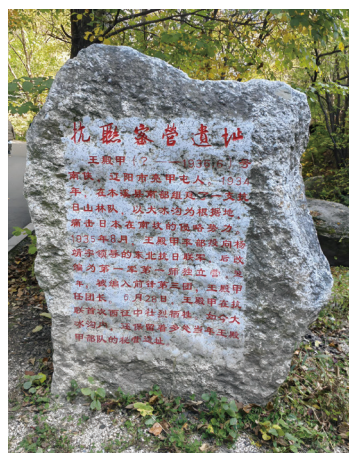 抗联密营遗址
王殿甲(?——1936.6)
南区,辽阳市亮甲屯人。1934
年,在本溪县南部组建了一支抗
日山林队,以大水沟为根据地,
痛击日本在南坟的侵略势力。
1935年8月,王殿甲率部投向杨
靖宇领导的东北抗日联军,后改
编为第一军第一师独立营。
年,被举入前计第三团,王殿甲
任团长。6月28日,王殿甲在抗
联首次西征中壮烈牺牲。如今大
水沟内,还保留着多处当年王殿
甲部队的秘营遗址。